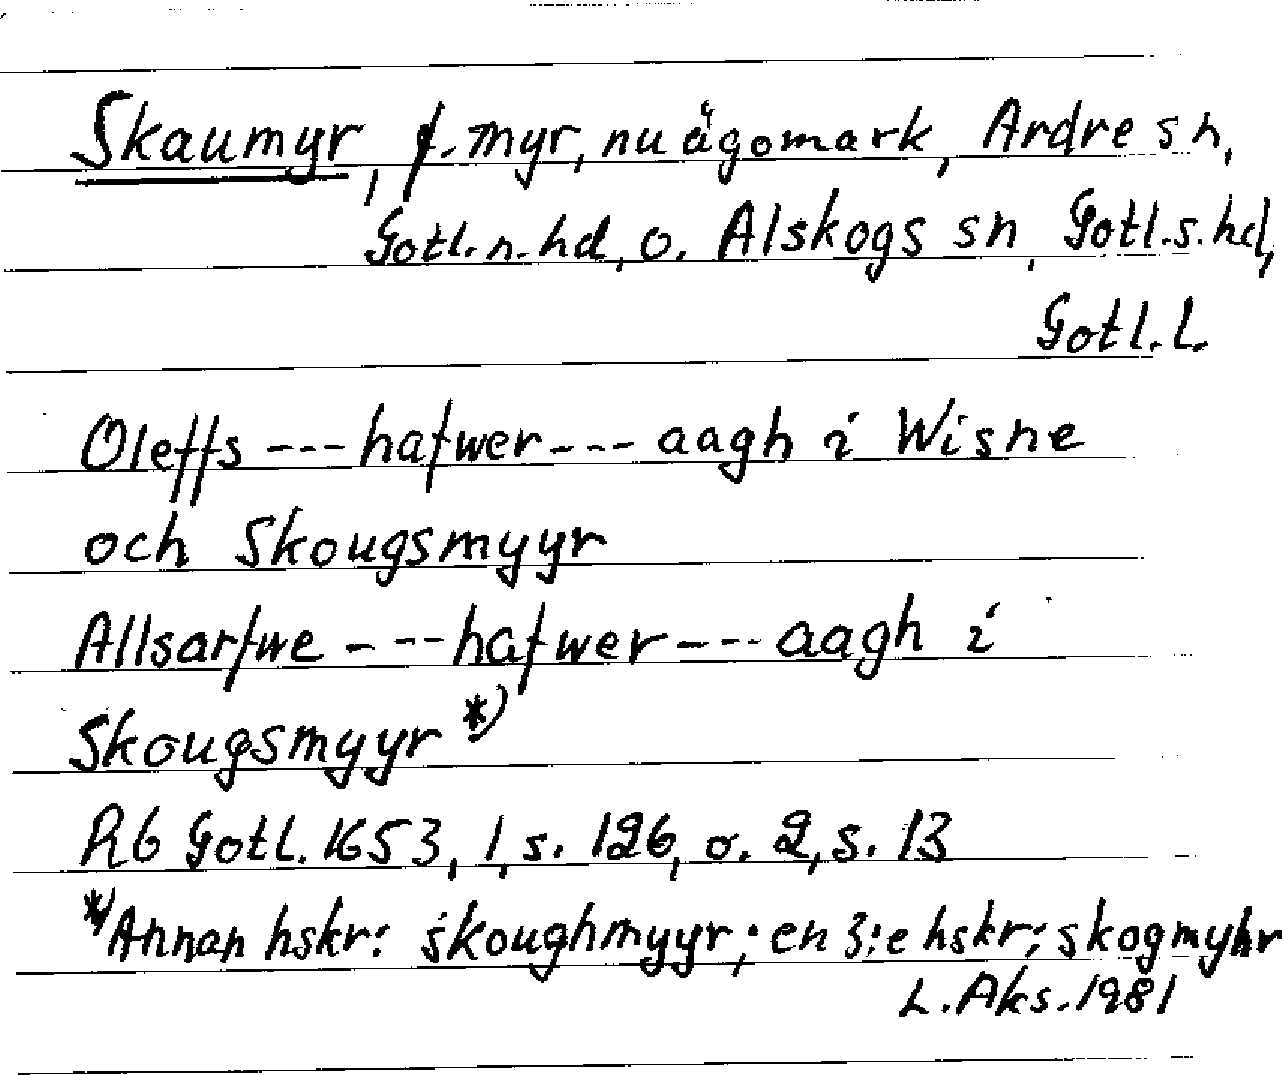 Skaumyr, f. myr, nu ägomark, Ardre sn,
Gotl. n. hd, o. Alskogs sn, Gotl. s. hd,
Gotl. l.
Oleffs --- hafwer --- aagh i Wisne
och Skougsmyyr
Allsarfwe ---- hafwer --- aagh i
Skougsmyyr *)
Rb Gotl. 1653, 1, s. 126, o. 2, s. 13
*) Annan hskr: skoughmyyr; en 3:e hskr: skogmyhr
L. Aks. 1981